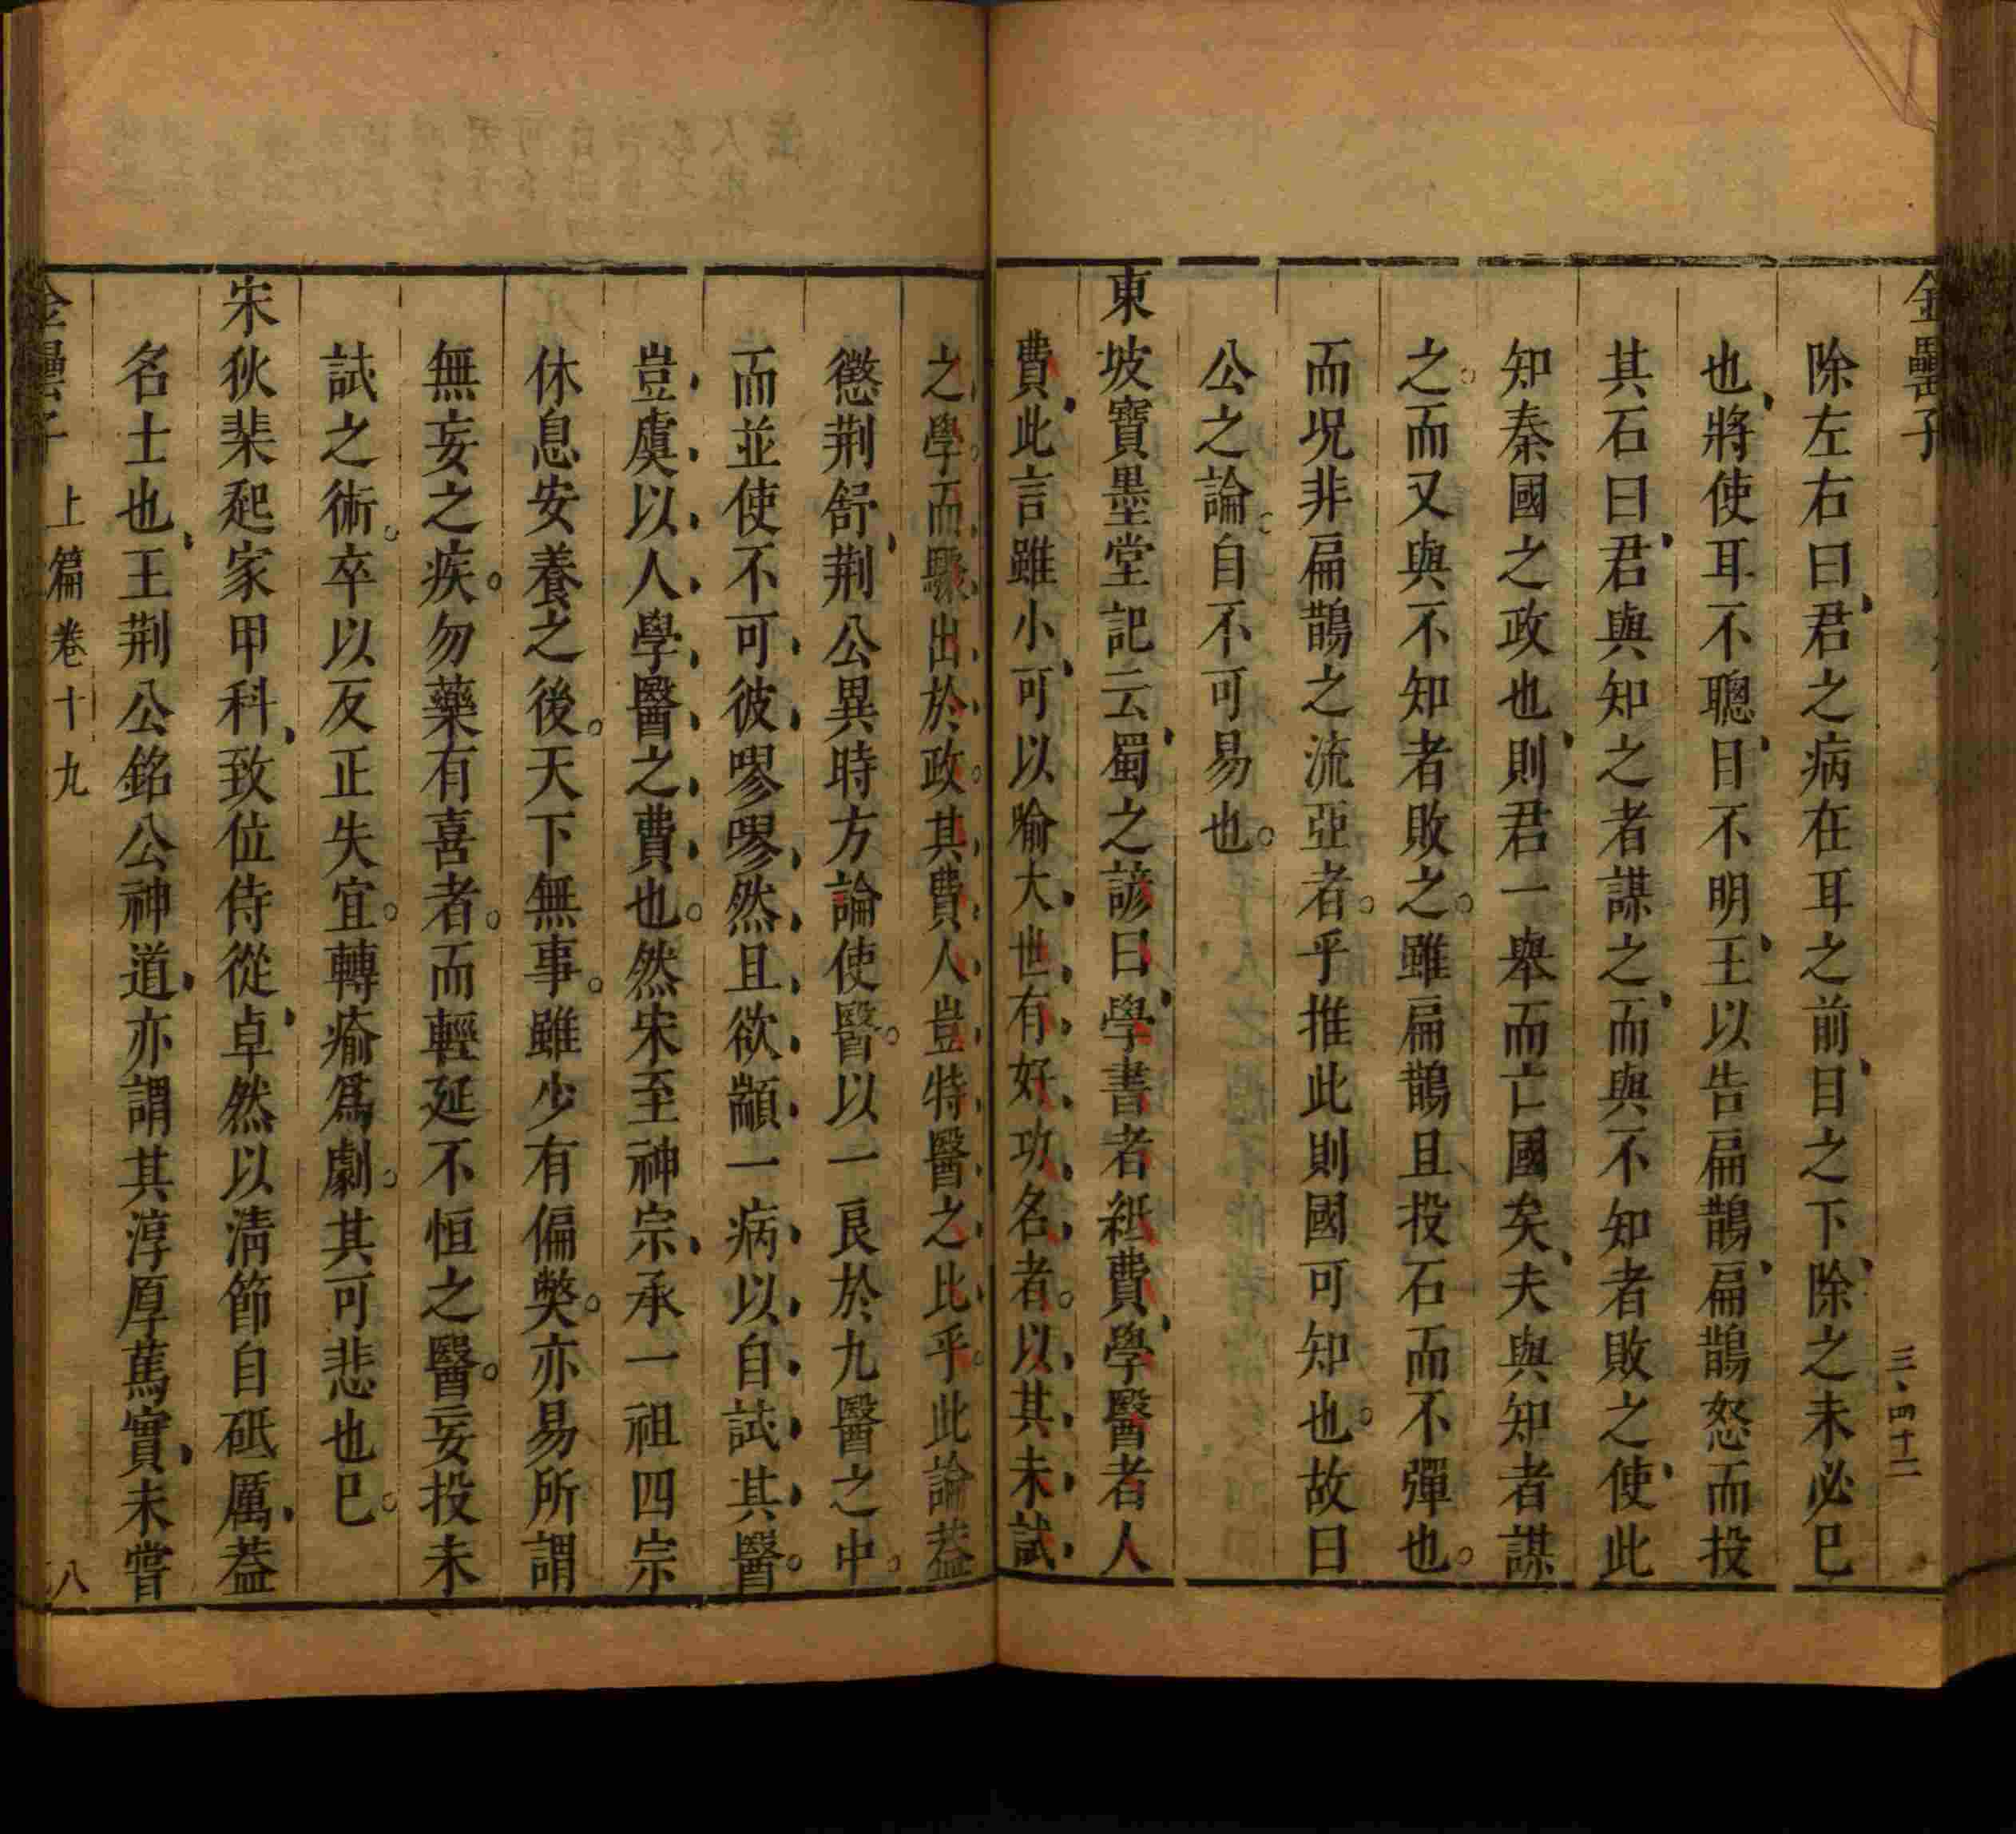 金罍子
三、四十二
除左右曰君之病在耳之前目之下除之未必已
也將使耳不聰目不明王以告扁鵲扁鵲怒而投
其石曰君與知之者謀之而與不知者敗之使此
知秦國之政也則君一舉而亡國矣夫與知者謀
之。而又與不知者敗之。雖扁鵲且投石而不彈也。
而況非扁鵲之流亞者。乎推此則國可知也。故曰
公之論。自不可易也。
東坡寶墨堂記云蜀之諺曰學書者紙費學醫者人
費此言雖小可以喻大世有好功名者。以其未試
之學。而驟出於政。其費人豈特醫之比乎。此論葢
懲荆舒荆公異時方論使醫。以一良於九醫之中。
而並使不可彼嘐嘐然且欲顓一病以自試其醫。
豈虞以人學醫之費也。然宋至神宗承一祖四宗
休息安養之後。天下無事。雖少有偏獘。亦易所謂
無妄之疾。勿藥有喜者。而輕延不恒之醫。妄投未
試之術。卒以反正失宜。轉瘉爲劇。其可悲也已。
宋狄棐起家甲科致位侍從卓然以淸節自砥厲葢
名士也王荆公銘公神道亦謂其淳厚篤實未嘗
金罍子
上篇卷十九
八